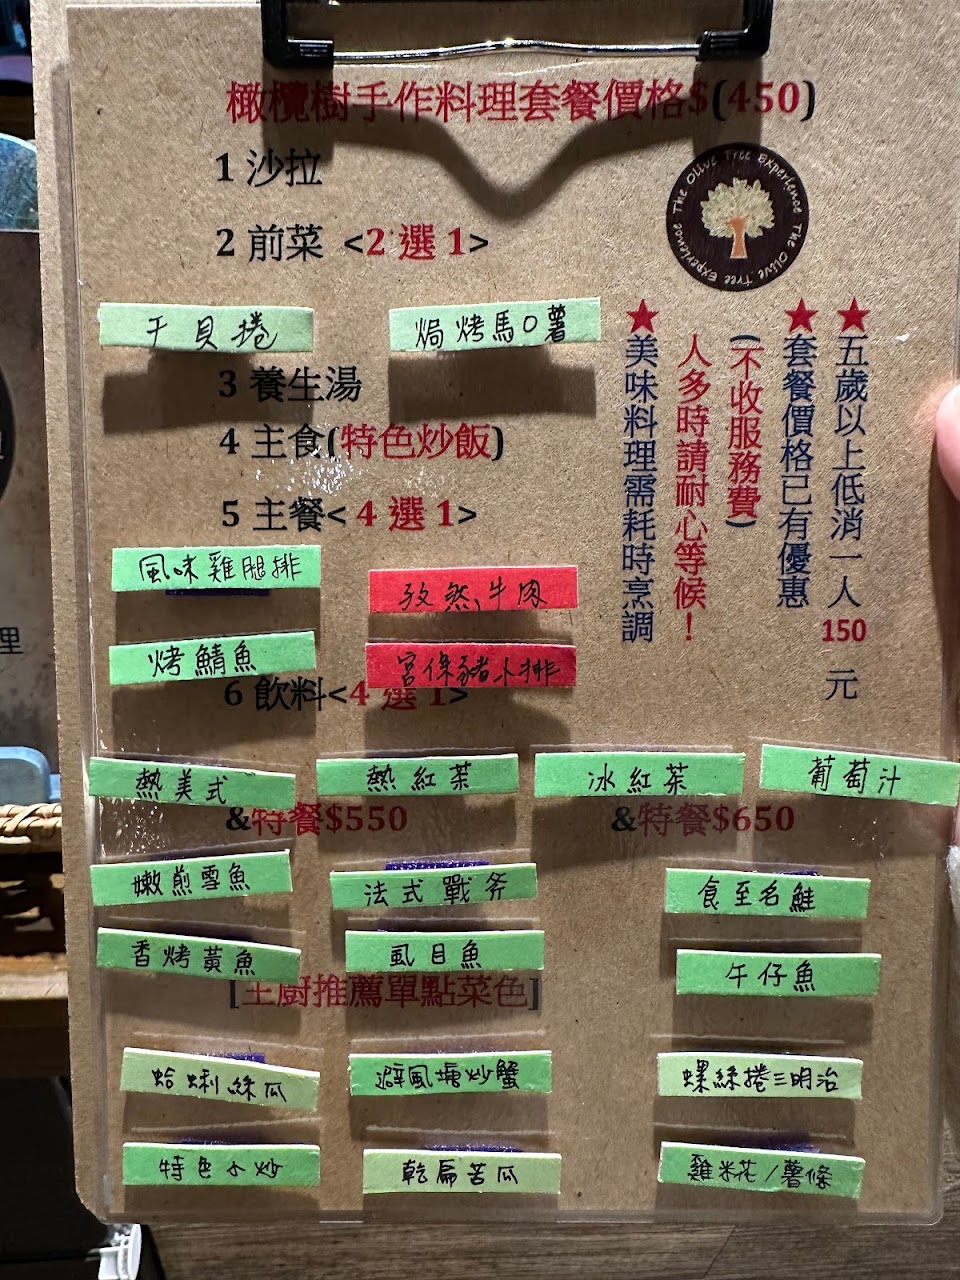 橄欖樹手作料理套餐價格$(450)
1 沙拉
2 前菜 <2 選 1>
干貝捲
焗烤馬O薯
3 養生湯
4 主食(特色炒飯)
5 主餐< 4 選 1>
風味雞腿排
孜然牛肉
烤鯖魚
宮保豬小排
6 飲料<4 選 1>
熱美式
熱紅茶
冰紅茶
葡萄汁
&特餐$550
&特餐$650
嫩煎雪魚
法式戰斧
食至名鮭
香烤黃魚
虱目魚
午仔魚
[主廚推薦單點菜色]
蛤蜊絲瓜
避風塘炒蟹
螺絲捲三明治
特色小炒
乾扁苦瓜
雞米花/薯條
The Olive Tree Experience The Olive Tree Experience
★五歲以上低消一人150元
★套餐價格已有優惠
(不收服務費)
人多時請耐心等候！
★美味料理需耗時烹調
理